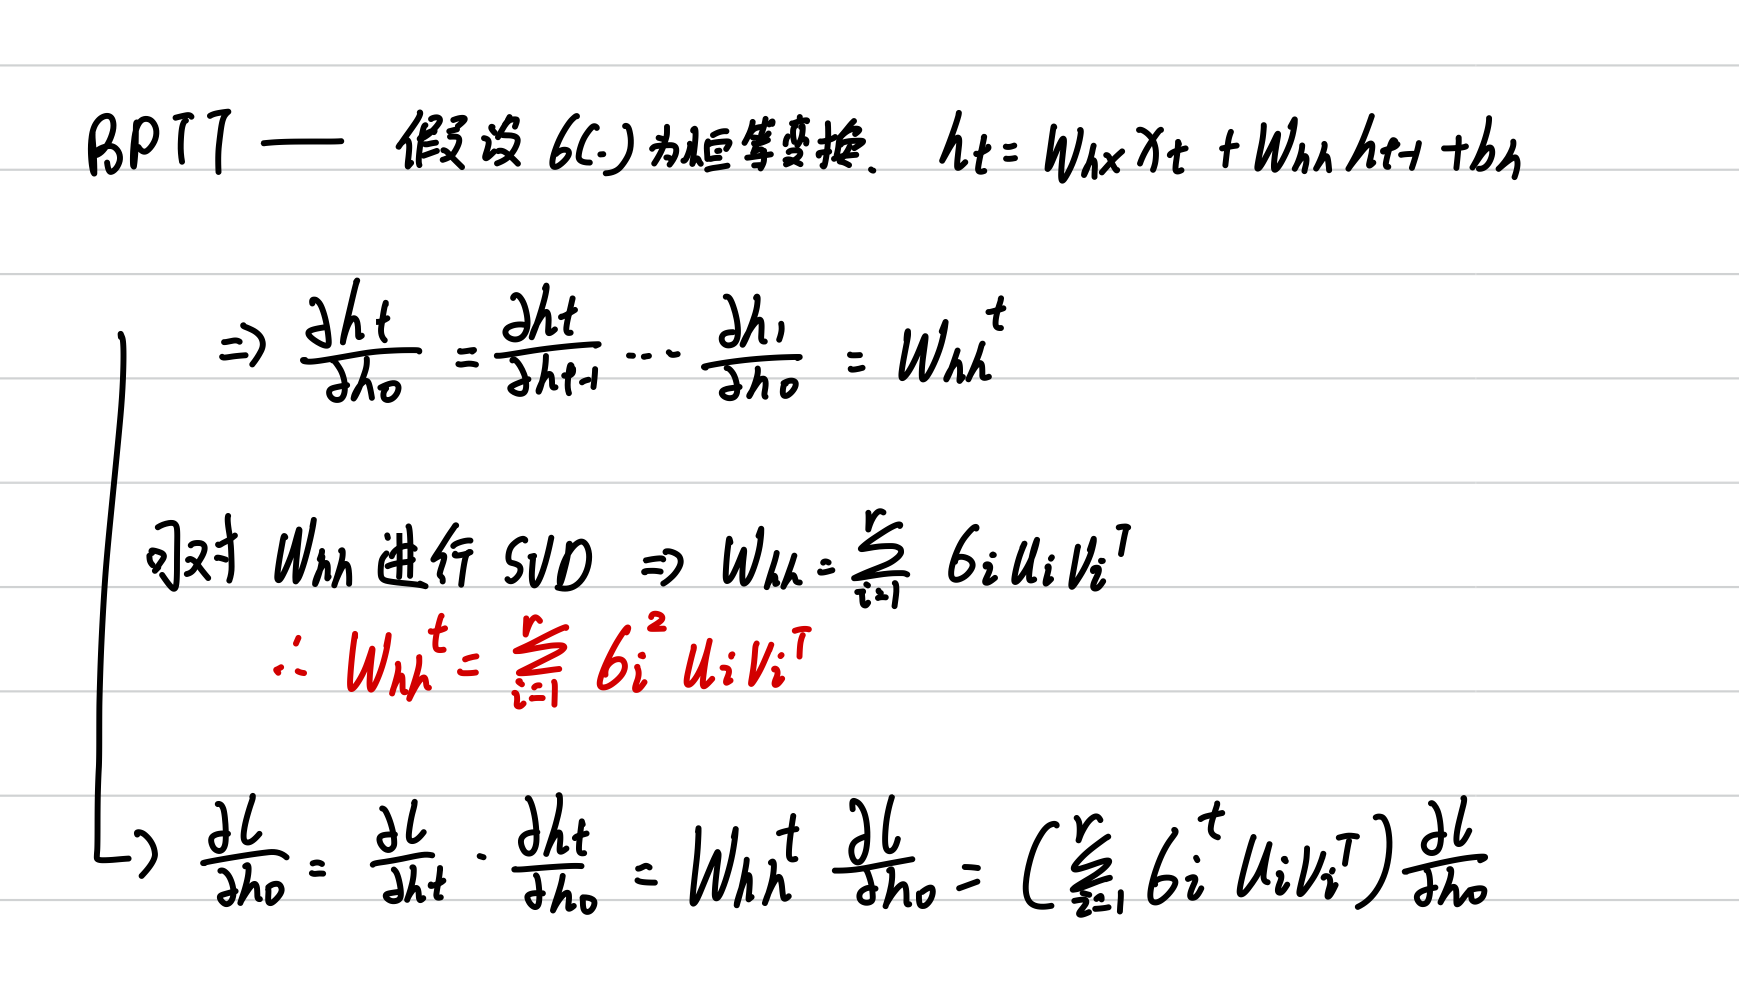 BPTT —— 假设 σ(·) 为恒等变换. h_t = W_hx x_t + W_hh h_{t-1} + b_h
⇒ ∂h_t/∂h_0 = ∂h_t/∂h_{t-1} ··· ∂h_1/∂h_0 = W_hh^t
可对 W_hh 进行 SVD ⇒ W_hh = ∑_{i=1}^r σ_i u_i v_i^T
∴ W_hh^t = ∑_{i=1}^r σ_i^2 u_i v_i^T
→ ∂l/∂h_0 = ∂l/∂h_t · ∂h_t/∂h_0 = W_hh^t ∂l/∂h_0 = (∑_{i=1}^r σ_i^t u_i v_i^T) ∂l/∂h_0